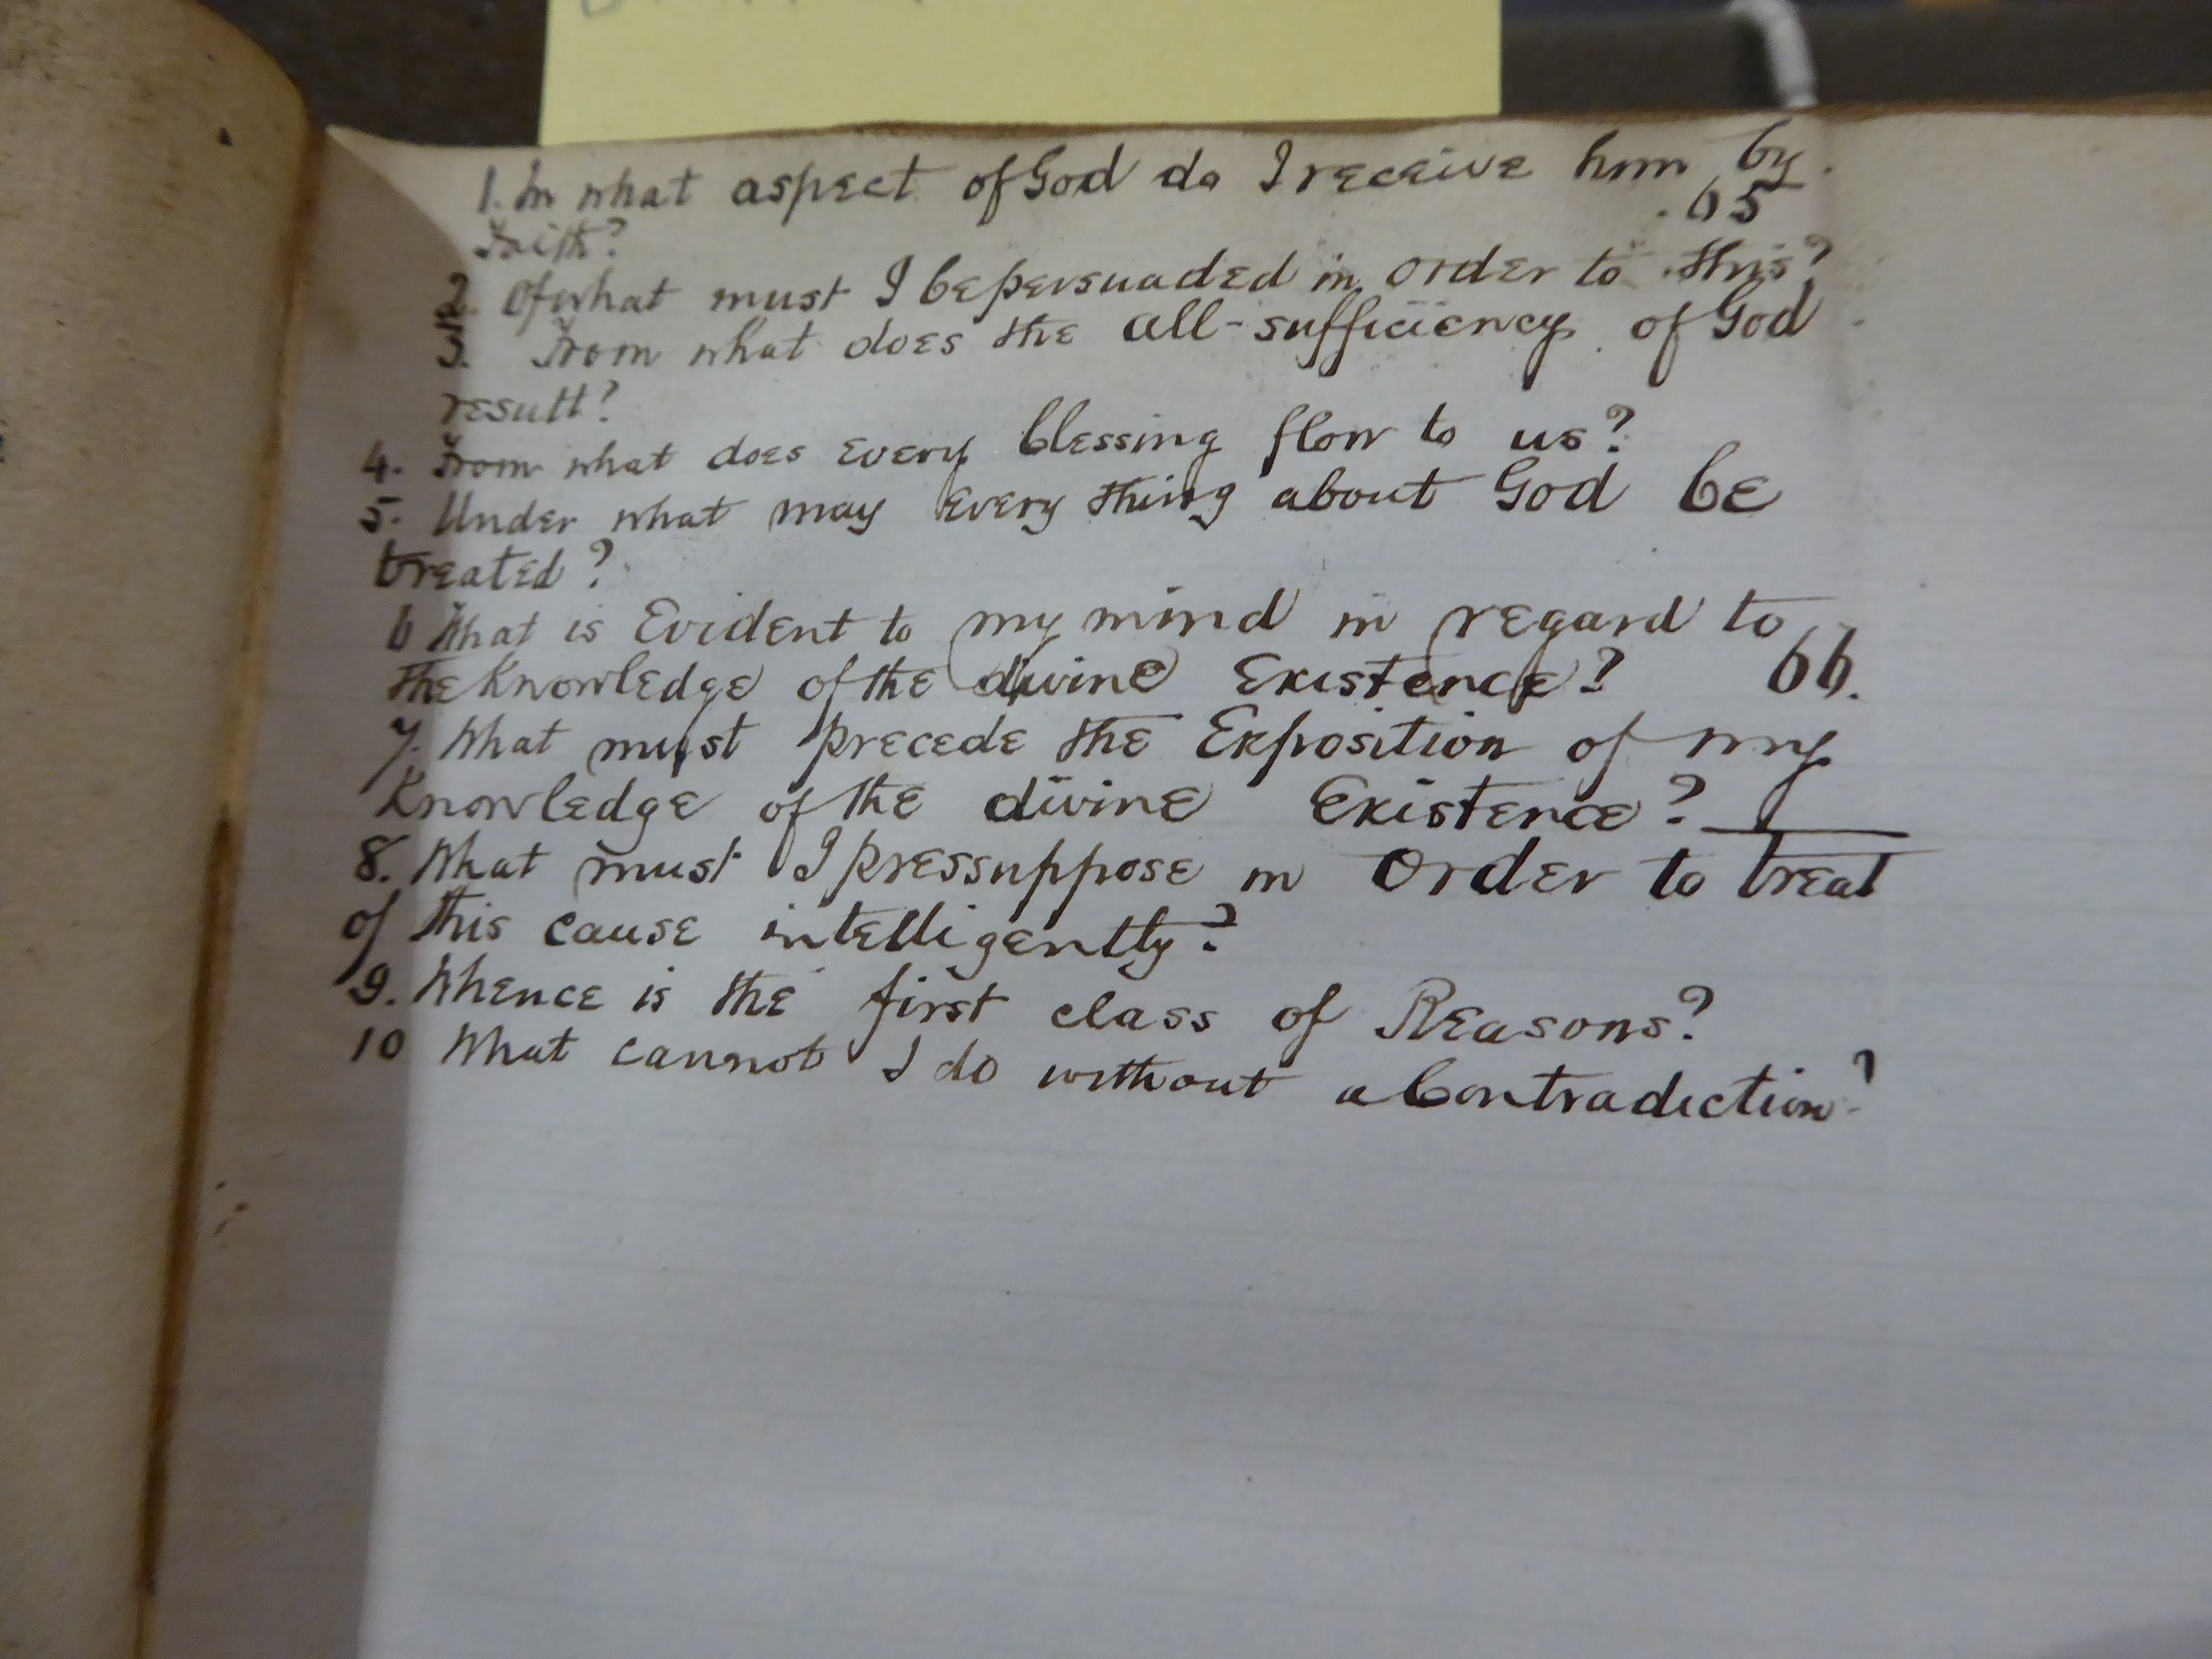 1. In what aspect of God do I receive him by
65
Faith?
2. Of what must I be persuaded in order to this?
3. From what does the all-sufficiency of God
result?
4. From what does every blessing flow to us?
5. Under what may every thing about God be
treated?
6 What is Evident to my mind in regard to
the Knowledge of the divine Existence? 66.
7. What must precede the Exposition of my
Knowledge of the divine Existence?
8. What must I pressuppose in order to treat
of this cause intelligently?
9. Whence is the first class of Reasons?
10 What cannot I do without a Contradiction?